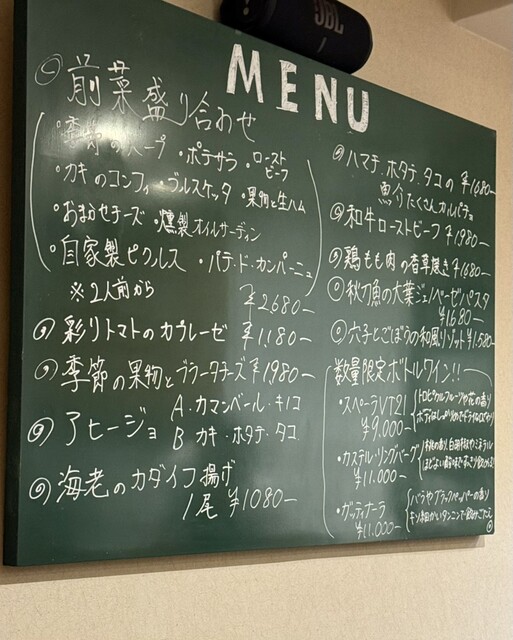 JBL
MENU
前菜盛り合わせ
・季節のスープ ・ポテサラ ・ローストビーフ
・カキのコンフィ ・ブルスケッタ ・果物と生ハム
・おまかせチーズ ・燻製オイルサーディン
・自家製ピクルス ・パテ・ド・カンパーニュ
※2人前から
¥2680-
彩りトマトのカプレーゼ ¥1,180-
季節の果物とブラータチーズ ¥1,980-
アヒージョ A.カマンベール・キノコ
B カキ・ホタテ・タコ
海老のカダイフ揚げ
1尾 ¥1080-
ハマチ、ホタテ、タコの ¥1,680-
魚介たくさんカルパッチョ
和牛ローストビーフ ¥1,980-
鶏もも肉の香草焼き ¥1,680-
秋刀魚の大葉ジェノベーゼパスタ
¥1,680-
穴子とごぼうの和風リゾット ¥1,580-
数量限定ボトルワイン!!
・スペーラVT21
¥9,000-
トロピカルフルーツや花の香り
・カステル・リングバーグ
¥11,000-
・ガッティナーラ
¥11,000-
バラやブラックペッパーの香り